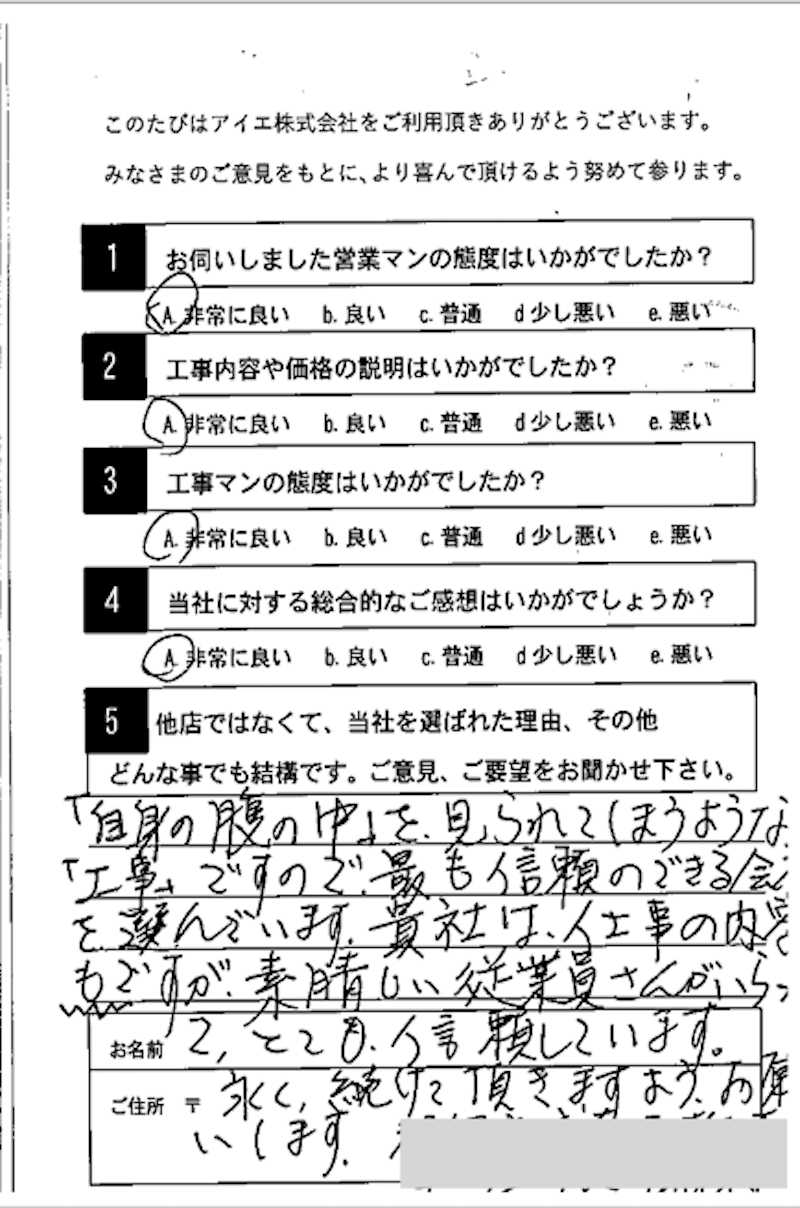 このたびはアイエ株式会社をご利用頂きありがとうございます。
みなさまのご意見をもとに、より喜んで頂けるよう努めて参ります。
1 お伺いしました営業マンの態度はいかがでしたか？
A. 非常に良い b. 良い c. 普通 d 少し悪い e. 悪い
2 工事内容や価格の説明はいかがでしたか？
A. 非常に良い b. 良い c. 普通 d 少し悪い e. 悪い
3 工事マンの態度はいかがでしたか？
A. 非常に良い b. 良い c. 普通 d 少し悪い e. 悪い
4 当社に対する総合的なご感想はいかがでしょうか？
A. 非常に良い b. 良い c. 普通 d 少し悪い e. 悪い
5 他店ではなくて、当社を選ばれた理由、その他
どんな事でも結構です。ご意見、ご要望をお聞かせ下さい。
「自身の腹の中」を、見られてしまうような
「工事」ですので、最も信頼のできる会
を選んでいます。貴社は、仕事の内容
もですが、素晴しい従業員さんがいらっ
お名前 て、とても、信頼しています。
ご住所 〒 永く、続けて頂きますよう、お願
いします。